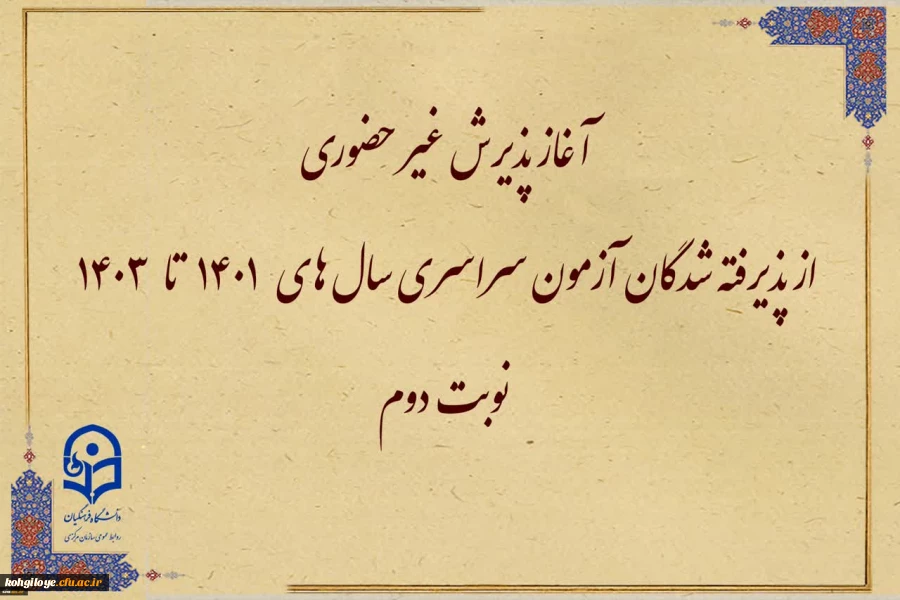 آغاز پذیرش غیر حضوری
از پذیرفته شدگان آزمون سراسری سال های ۱۴۰۱ تا ۱۴۰۳
نوبت دوم
دانشگاه فرهنگیان
روابط عمومی سازمان مرکزی
kohgiloye.cfu.ac.ir